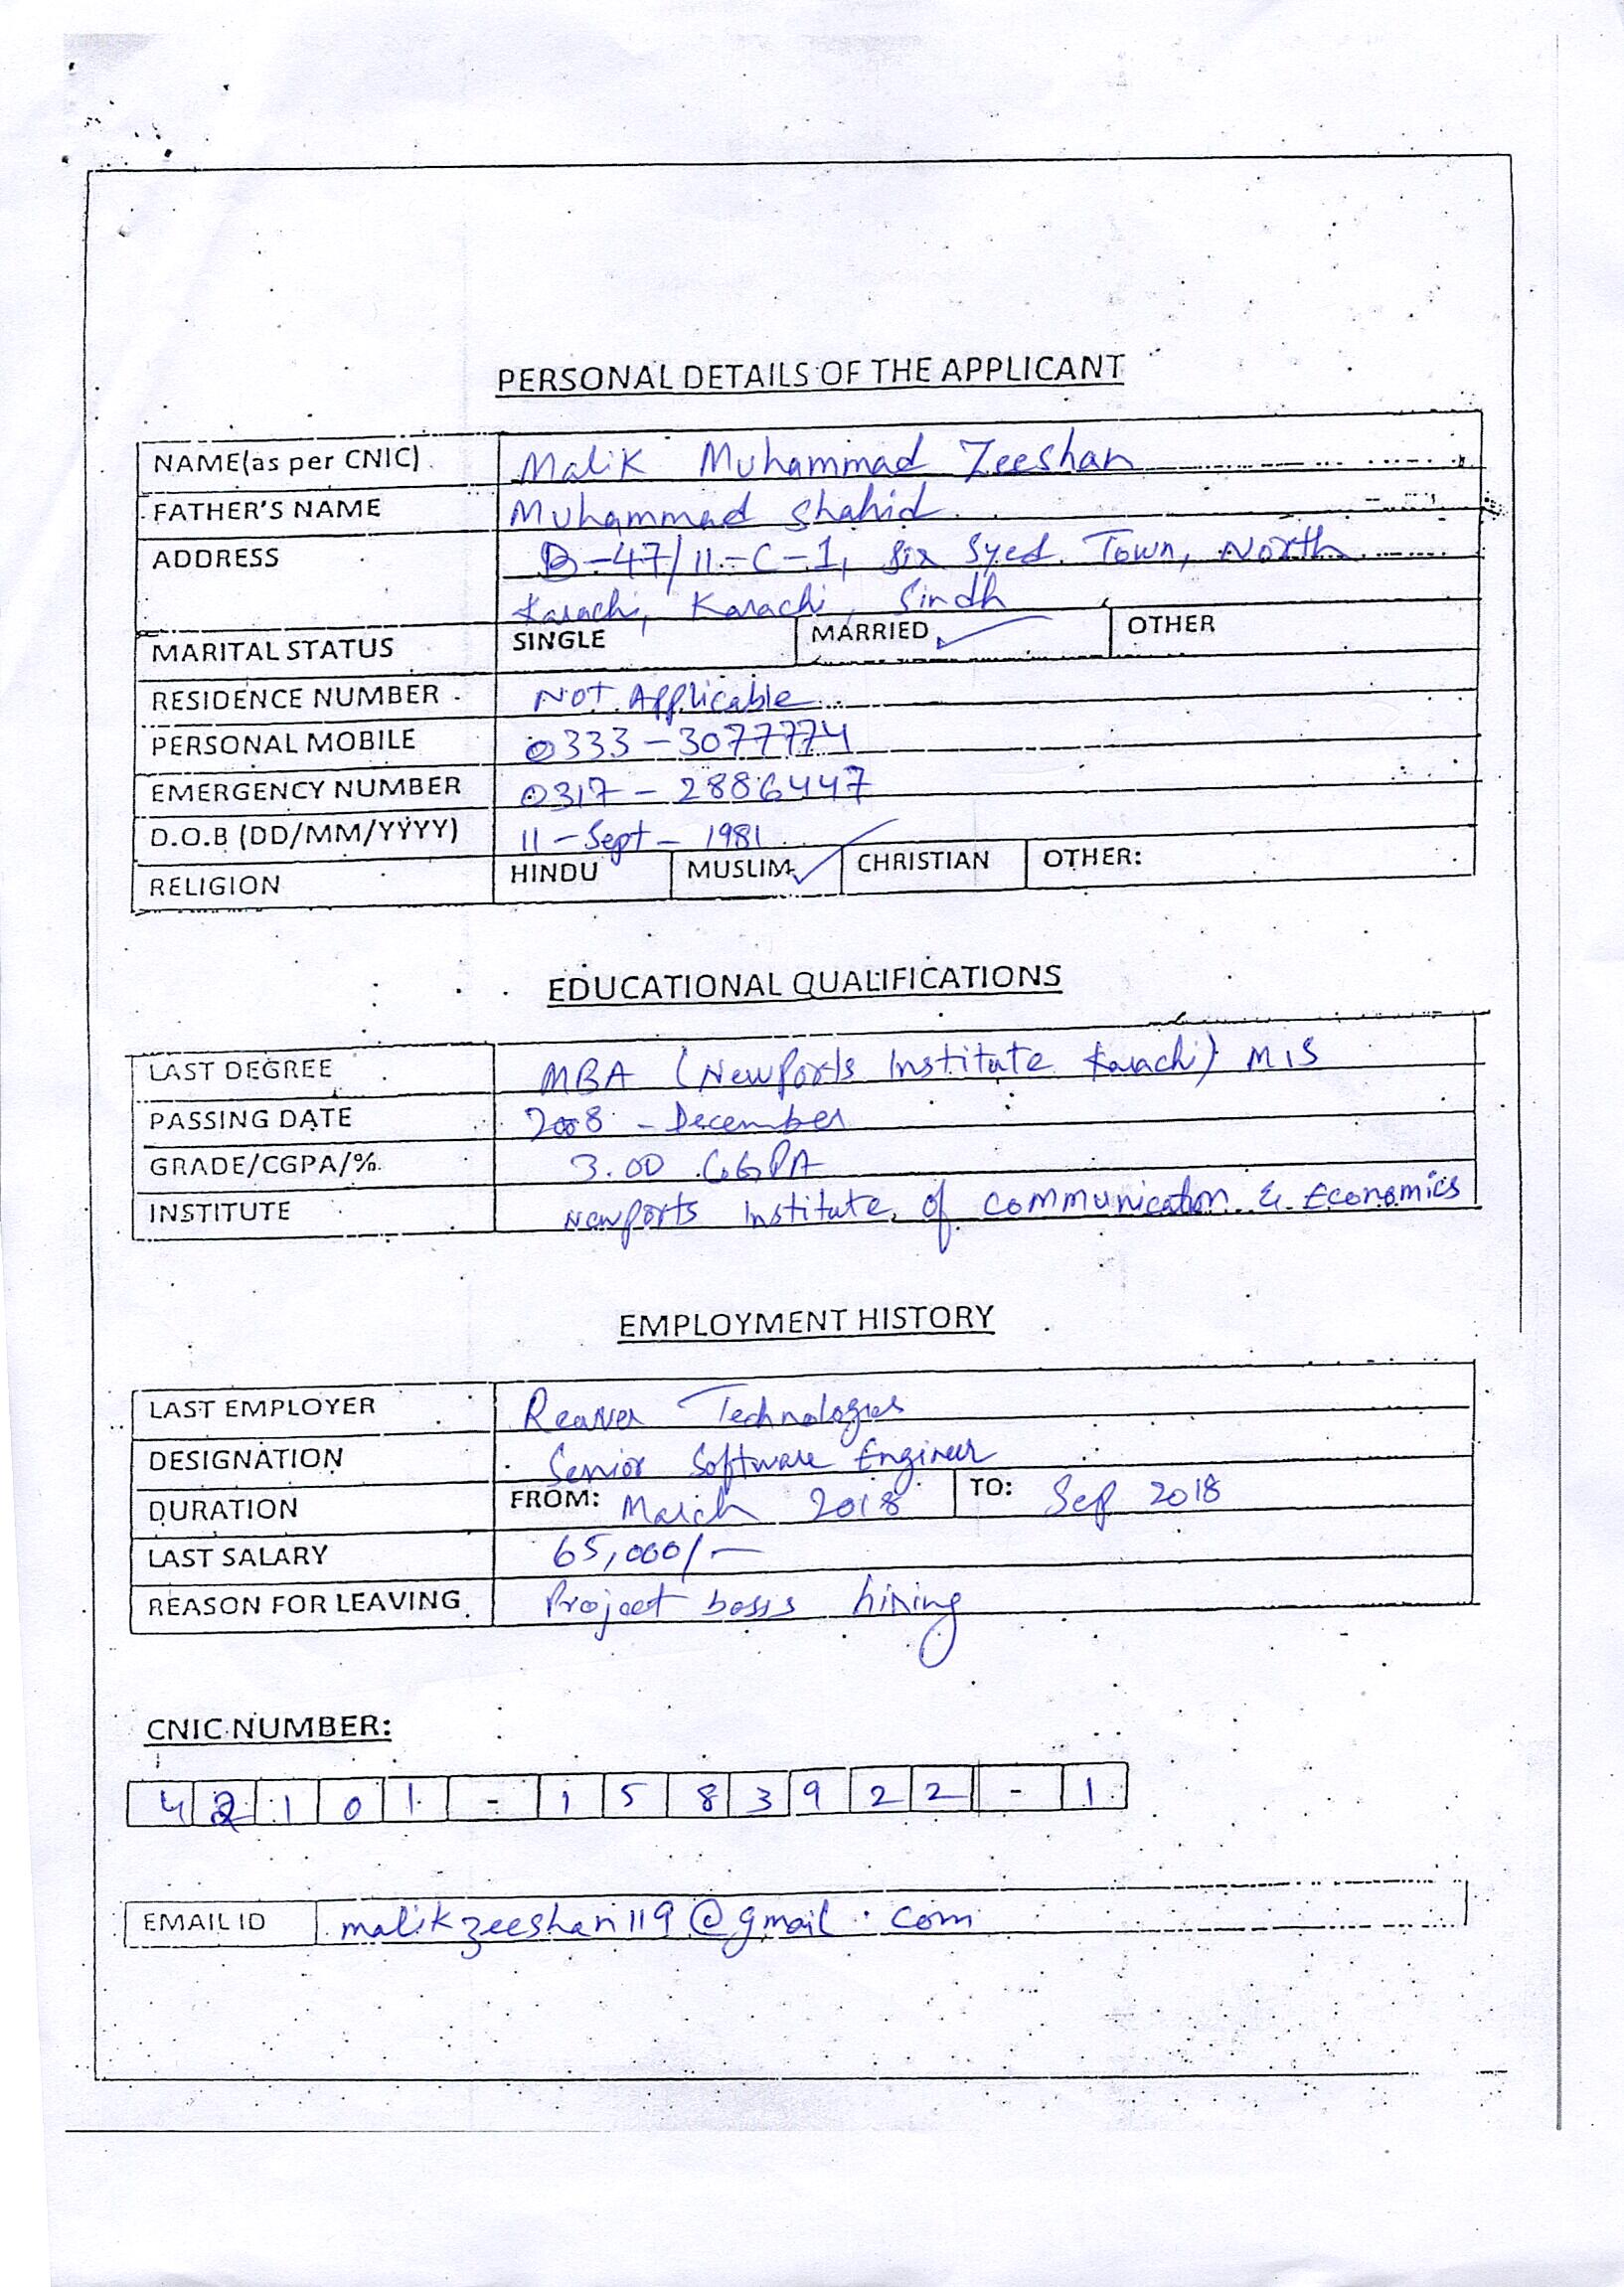 PERSONAL DETAILS OF THE APPLICANT
NAME(as per CNIC) Malik Muhammad Zeeshan
FATHER'S NAME Muhammad Shahid
ADDRESS B-47/11-C-1, Sir Syed Town, North
Karachi, Karachi, Sindh
MARITAL STATUS SINGLE MARRIED ✓ OTHER
RESIDENCE NUMBER Not Applicable
PERSONAL MOBILE 0333-3077774
EMERGENCY NUMBER 0317-2886447
D.O.B (DD/MM/YYYY) 11-Sept-1981
RELIGION HINDU MUSLIM ✓ CHRISTIAN OTHER:
EDUCATIONAL QUALIFICATIONS
LAST DEGREE MBA (Newports Institute Karachi) MIS
PASSING DATE 2008 - December
GRADE/CGPA/% 3.00 CGPA
INSTITUTE Newports Institute of communication & Economics
EMPLOYMENT HISTORY
LAST EMPLOYER Technologies
DESIGNATION Senior Software Engineer
DURATION FROM: March 2018 TO: Sep 2018
LAST SALARY 65,000/-
REASON FOR LEAVING Project basis hiring
CNIC NUMBER:
42101-1583922-1
EMAIL ID malikzeeshan119@gmail.com